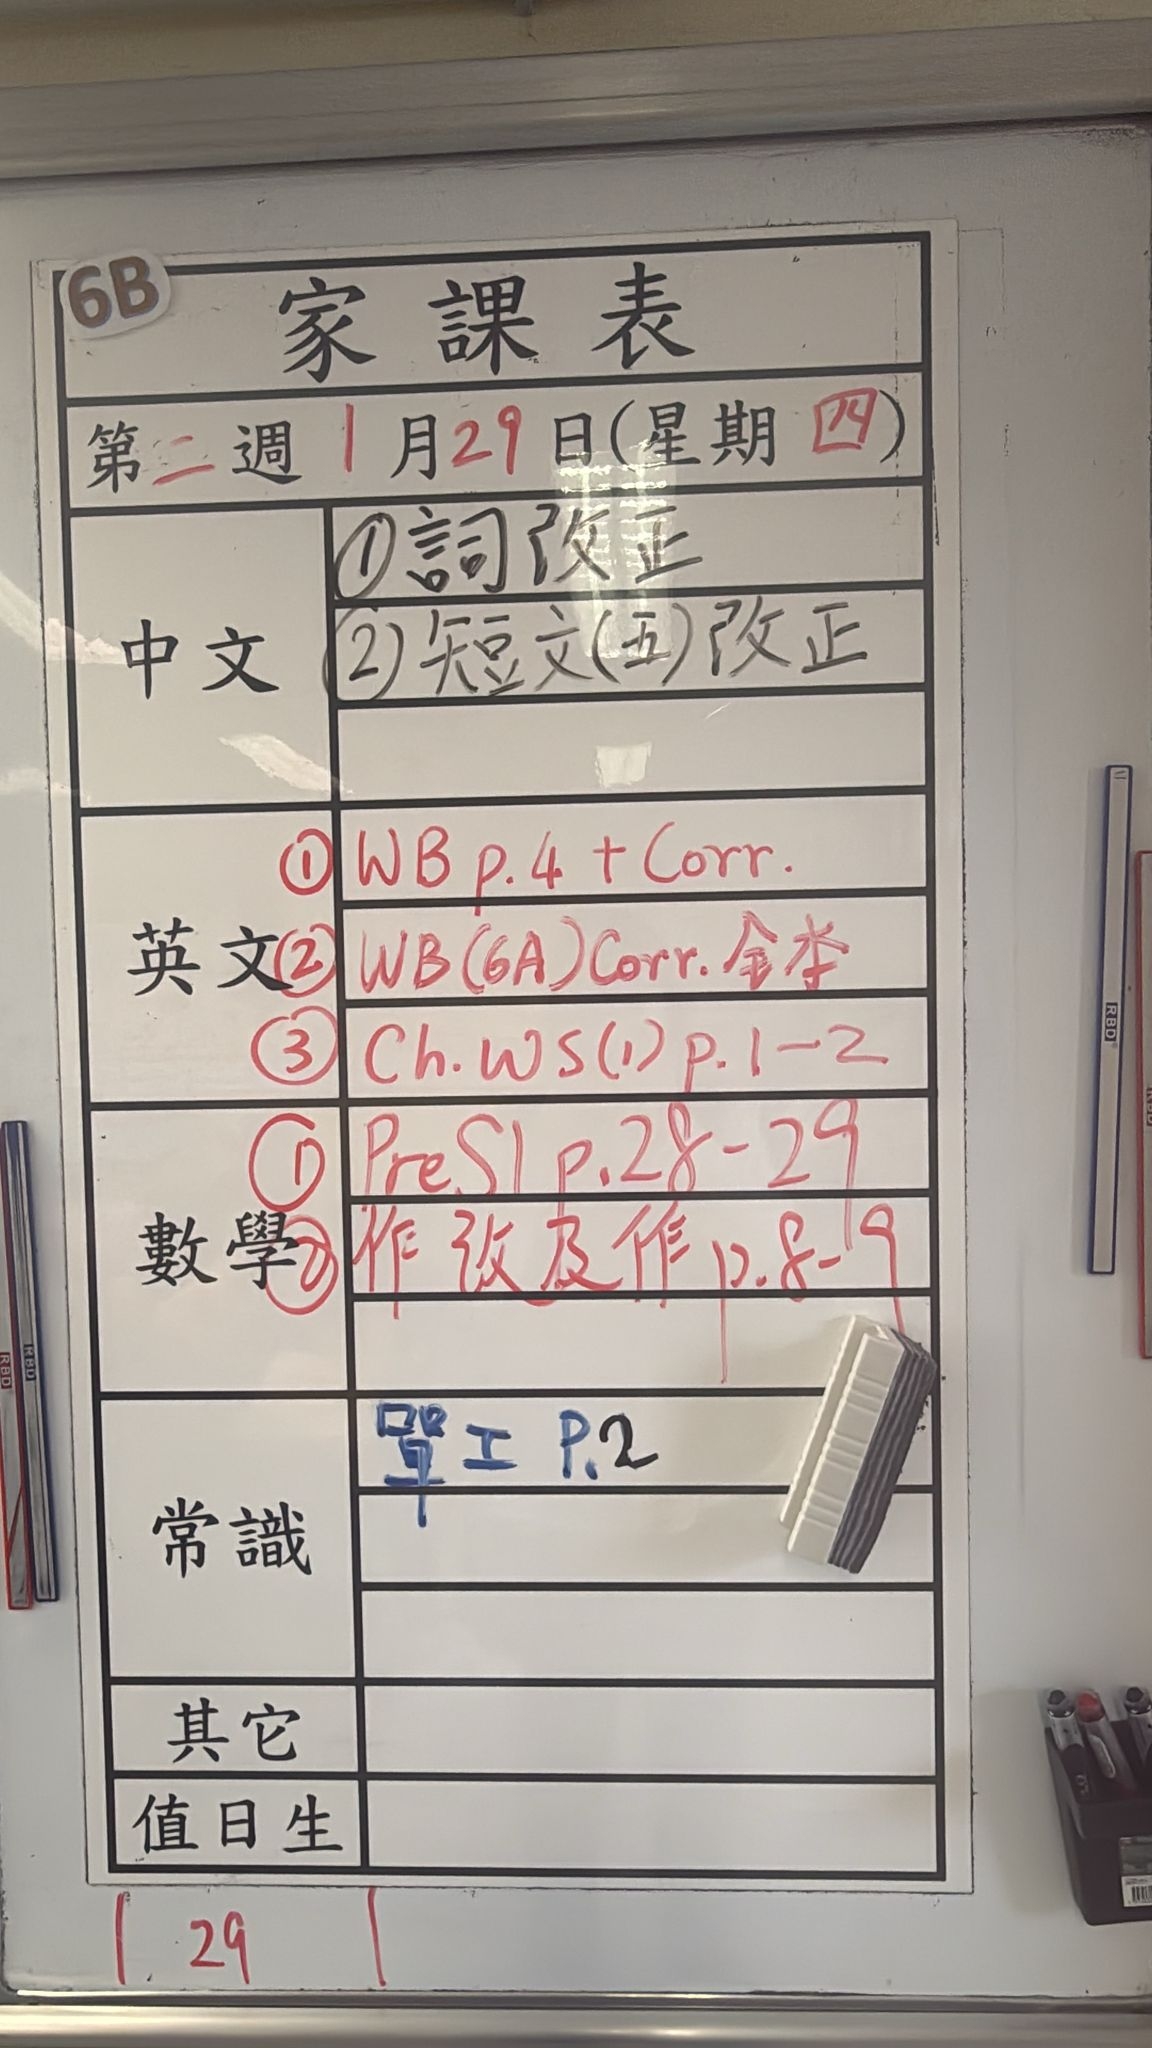 6B
家課表
第二週 1月29日(星期四)
中文
①詞改正
(2)短文(五)改正
英文
① WB p.4 + Corr.
② WB(6A)Corr.全本
③ Ch.WS(1) p.1-2
數學
① Pre.S1 p.28-29
② 作改及作 p.8-9
常識
單工 P.2
其它
值日生
1 29 1
RBD
RBD
RBD
RBD